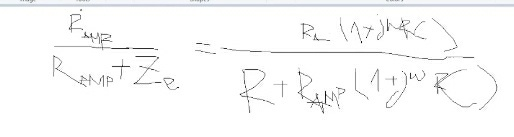 R_AMP / (R_AMP + Z_e) = R_A (1+jωRC) / (R + R_AMP (1+jω RC))